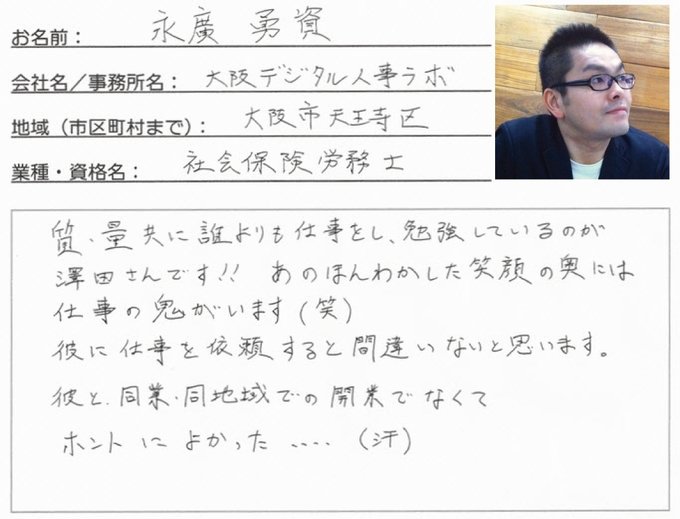 お名前： 永廣 勇資
会社名／事務所名： 大阪デジタル人事ラボ
地域（市区町村まで）： 大阪市天王寺区
業種・資格名： 社会保険労務士
質・量共に誰よりも仕事をし、勉強しているのが
澤田さんです!! あのほんわかした笑顔の奥には
仕事の鬼がいます(笑)
彼に仕事を依頼すると間違いないと思います。
彼と、同業・同地域での開業でなくて
ホントによかった ....（汗）